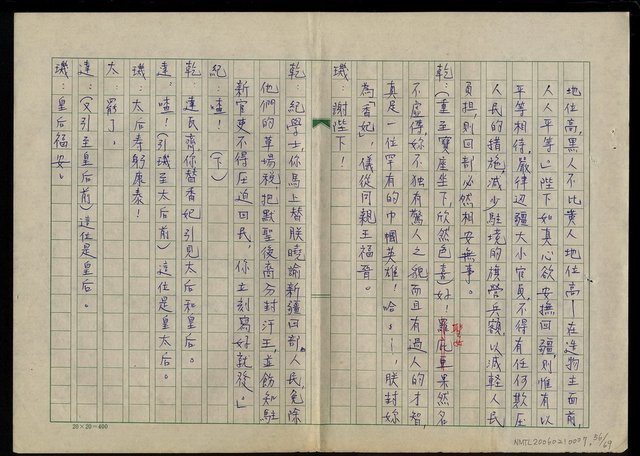 地位高,黑人不比黃人地位高—在造物主面前,
人人平等。」陛下如真心欲安撫回疆,則惟有以
平等相待,嚴律边疆大小官員,不得有任何欺压
人民的措施,減少駐境的旗營兵額以減輕人民
負担,則回部必然相安無事。
乾:(重至寶座坐下欣然色喜)好!羅庇聖女果然名
不虛傳,妳不独有驚人之貌而且有過人的才智,
真是一位罕有的巾幗英雄!哈哈—,朕封妳
為「香妃」,儀從同親王福晉。
璣:謝陛下!
乾:紀學士,你馬上替朕曉諭新疆回部人民,免除
他們的草場稅,把默聖後裔分封汗王,並飭知駐
新官吏不得压迫回民,你立刻寫好就發。」
紀:喳!(下)
乾:達瓦齊,你替香妃引見太后和皇后。
達:喳!(引璣至太后前)這位是皇太后。
璣:太后聖躬康泰!
太:罷了。
達:(又引至皇后前)這位是皇后。
璣:皇后福安。
20×20=400
NMTL20060210007
56/69